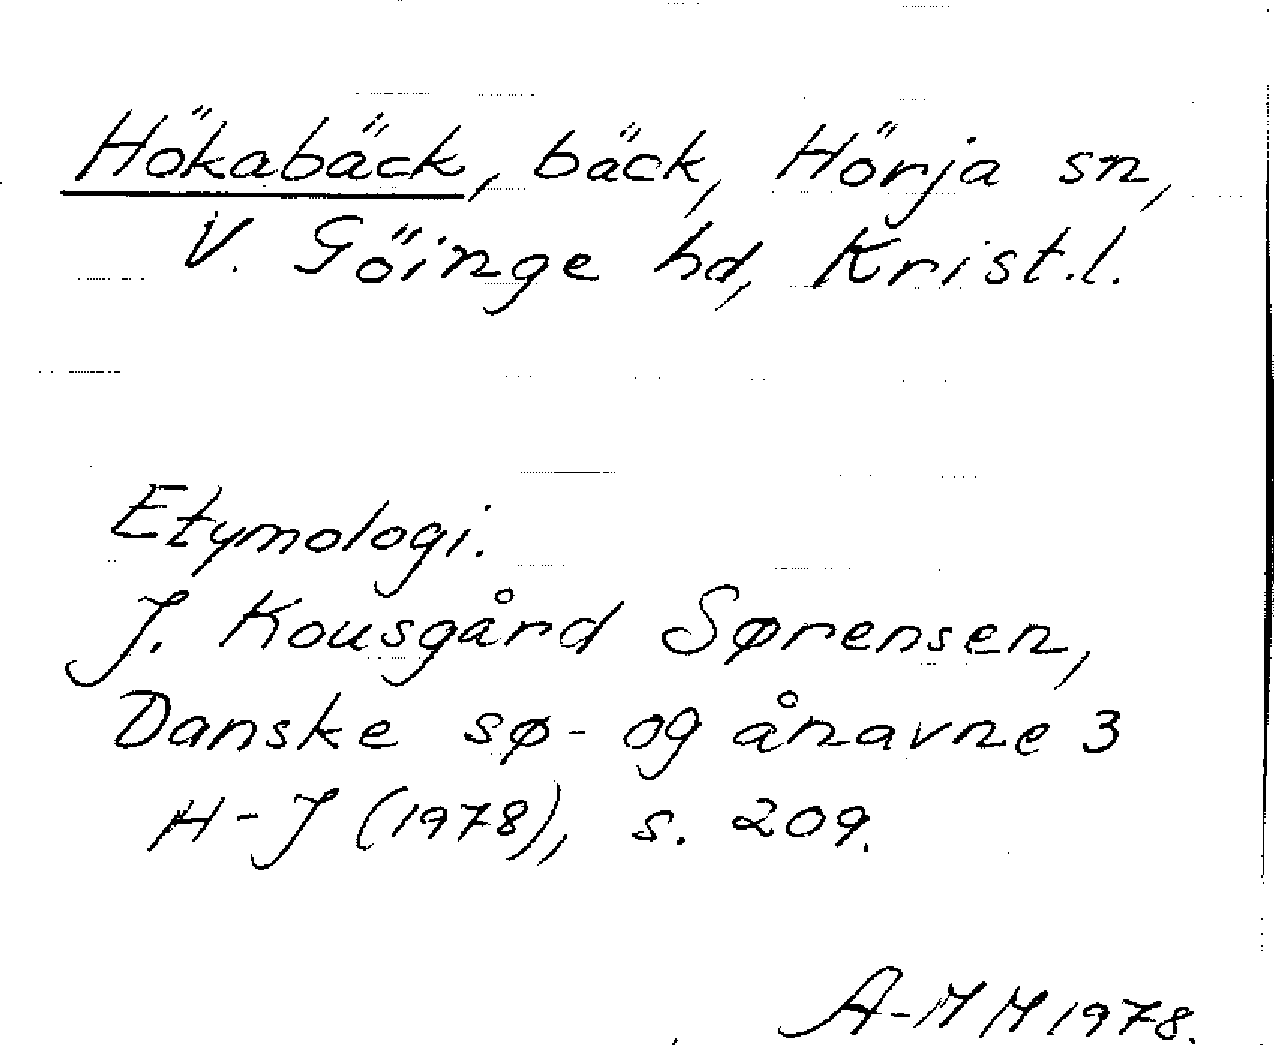 Hökabäck, bäck, Hörja sn,
V. Göinge hd, Krist.l.
Etymologi.
J. Kousgård Sørensen,
Danske sø- og ånavne 3
H-J (1978), s. 209.
A-M M 1978.